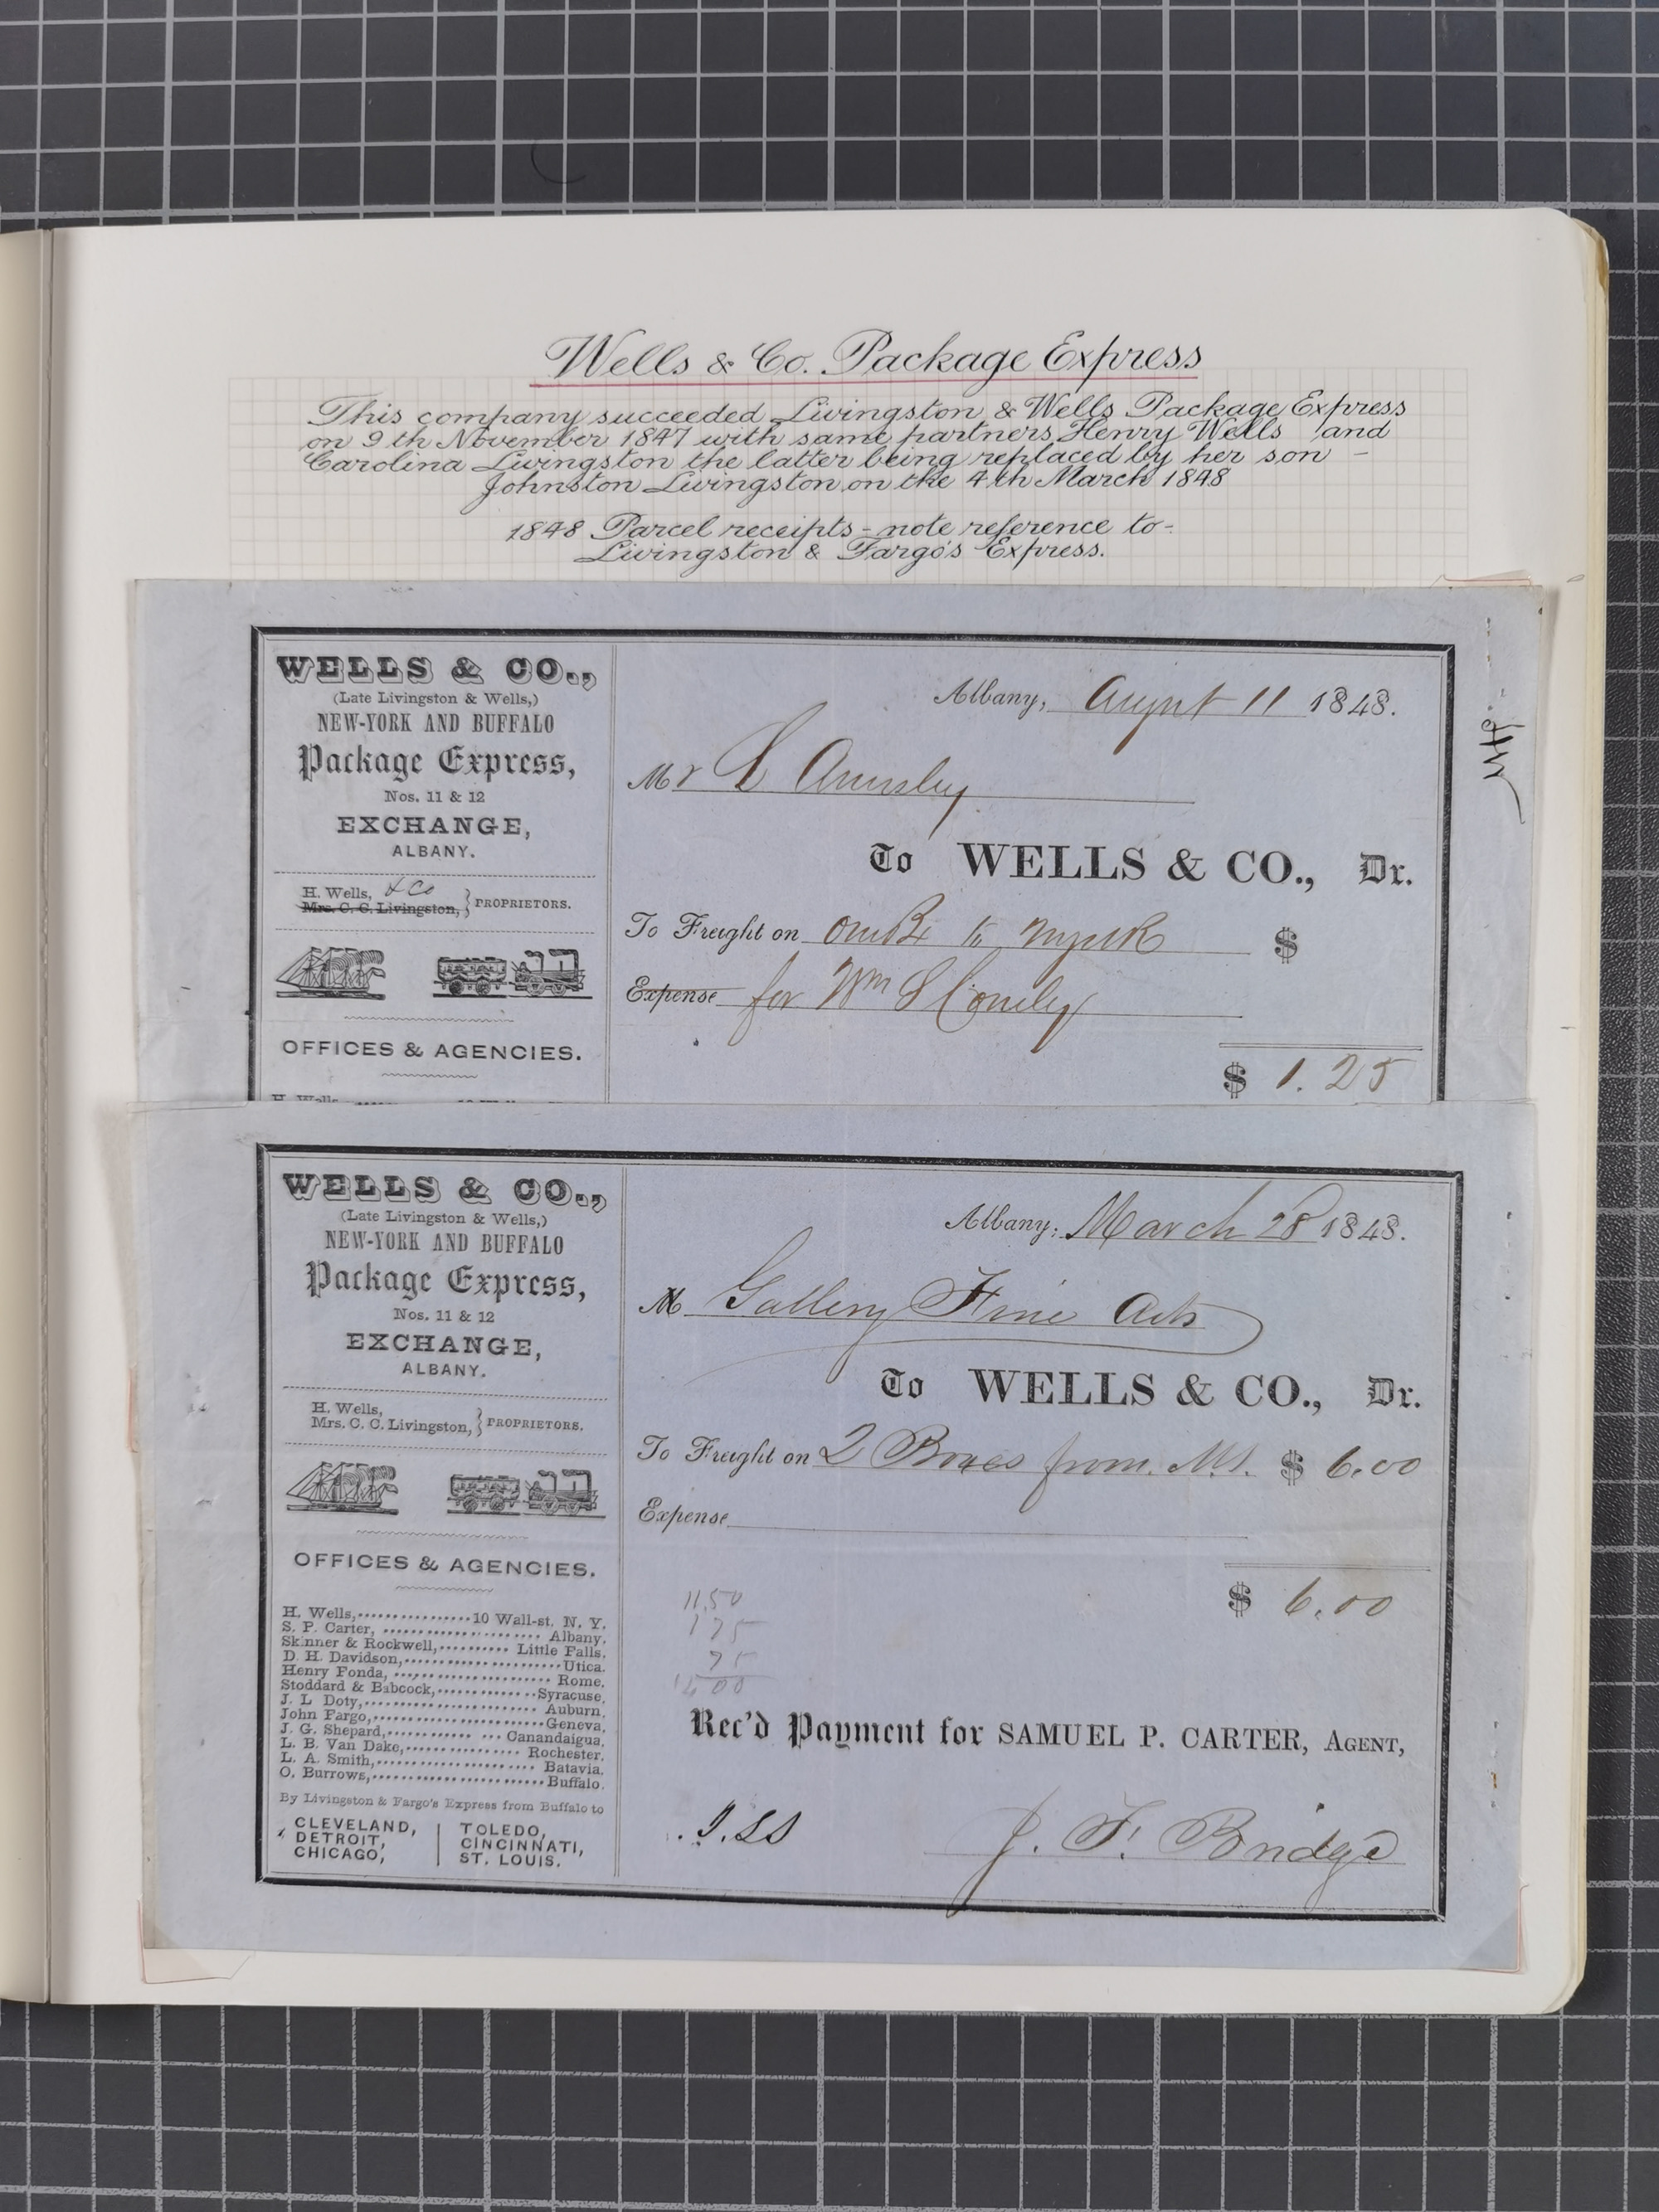 Wells & Co. Package Express
This company succeeded Livingston & Wells Package Express
on 9th November 1847 with same partners Henry Wells and
Carolina Livingston the latter being replaced by her son -
Johnston Livingston on the 4th March 1848
1848 Parcel receipts - note reference to -
Livingston & Fargo's Express.
WELLS & CO.,
(Late Livingston & Wells,)
NEW-YORK AND BUFFALO
Package Express,
Nos. 11 & 12
EXCHANGE,
ALBANY.
H. Wells, & Co
Mrs. C. C. Livingston, } PROPRIETORS.
OFFICES & AGENCIES.
Albany, August 11 1848.
Mr
To WELLS & CO., Dr.
To Freight on $
Expense for Wm
$ 1.25
WELLS & CO.,
(Late Livingston & Wells,)
NEW-YORK AND BUFFALO
Package Express,
Nos. 11 & 12
EXCHANGE,
ALBANY.
H. Wells,
Mrs. C. C. Livingston, } PROPRIETORS.
OFFICES & AGENCIES.
H. Wells, 10 Wall-st. N. Y.
S. P. Carter, Albany.
Skinner & Rockwell, Little Falls.
D. H. Davidson, Utica.
Henry Fonda, Rome.
Stoddard & Babcock, Syracuse.
J. L Doty, Auburn.
John Fargo, Geneva.
J. G. Shepard, Canandaigua.
L. B. Van Dake, Rochester.
L. A. Smith, Batavia.
O. Burrows, Buffalo.
By Livingston & Fargo's Express from Buffalo to
CLEVELAND, TOLEDO,
DETROIT, CINCINNATI,
CHICAGO, ST. LOUIS.
Albany, March 28 1848.
M Gallery Fine Arts
To WELLS & CO., Dr.
To Freight on 2 Boxes from $ 6.00
Expense
$ 6.00
11.50
175
75
Rec'd Payment for SAMUEL P. CARTER, AGENT,
J. F. Bridge